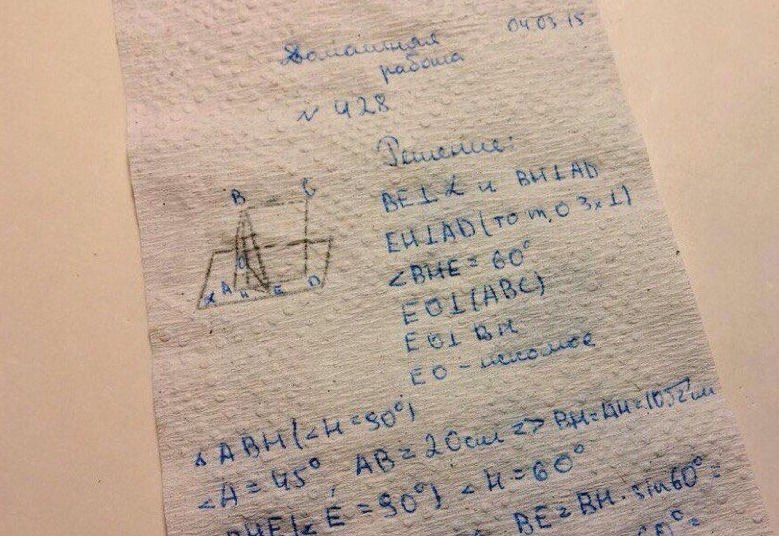 04.03.15
Домашняя
работа
№ 428
Решение:
BE⊥α и BH⊥AD
EH⊥AD (по т. о 3х ⊥)
∠BHE = 60°
EO⊥(ABC)
EO⊥BH
EO - искомое
B C
O
α A H E D
△ABH (∠H = 90°)
∠A = 45°, AB = 20см => BH = AH = 10√2 см
BHE (∠E = 90°) ∠H = 60°
BE = BH · sin60° =